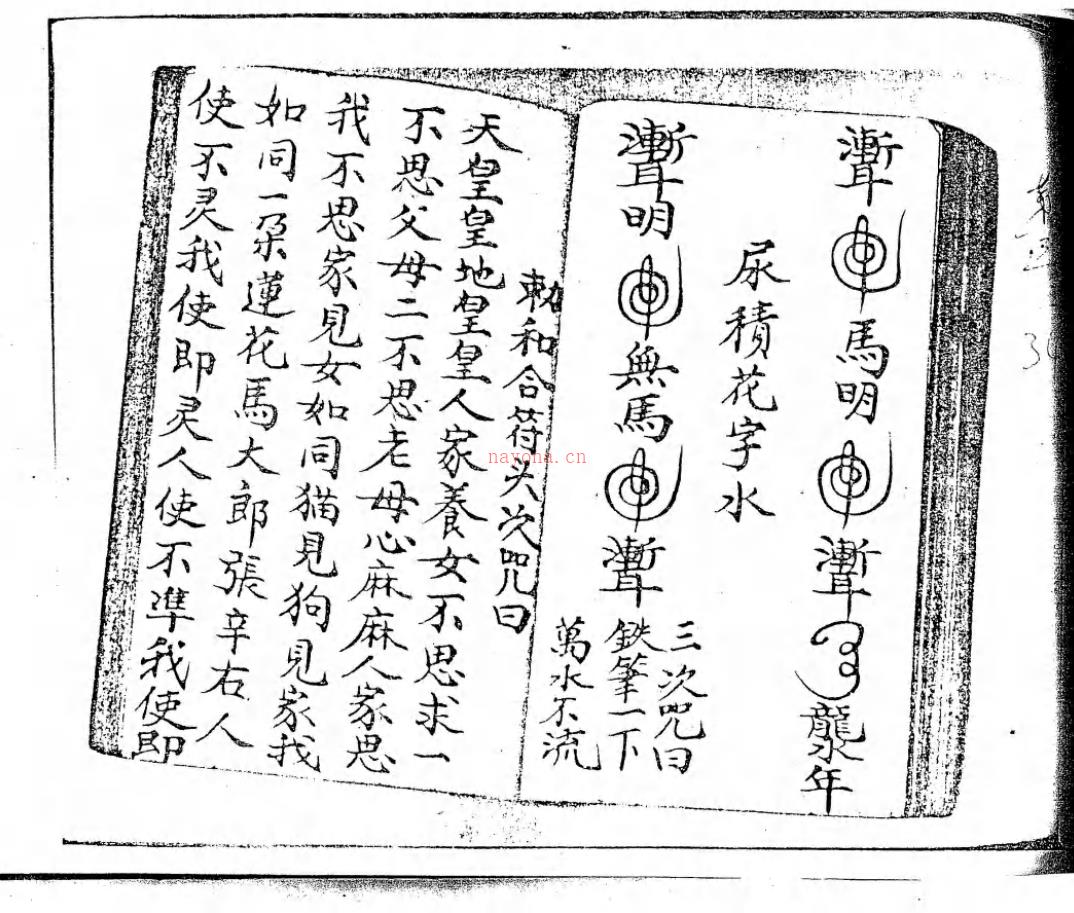 馬明龍水年
尿積花字水
明無馬
三次咒曰
鉄筆一下
萬水不流
和合符头次咒曰
天皇皇地皇皇人家養女不思求一
不思父母二不思老母心麻麻人家思
我不思家見女如同猫見狗見家我
如同一朶蓮花馬大郎張辛右人
使不灵我使即灵人使不準我使即
nayona.cn